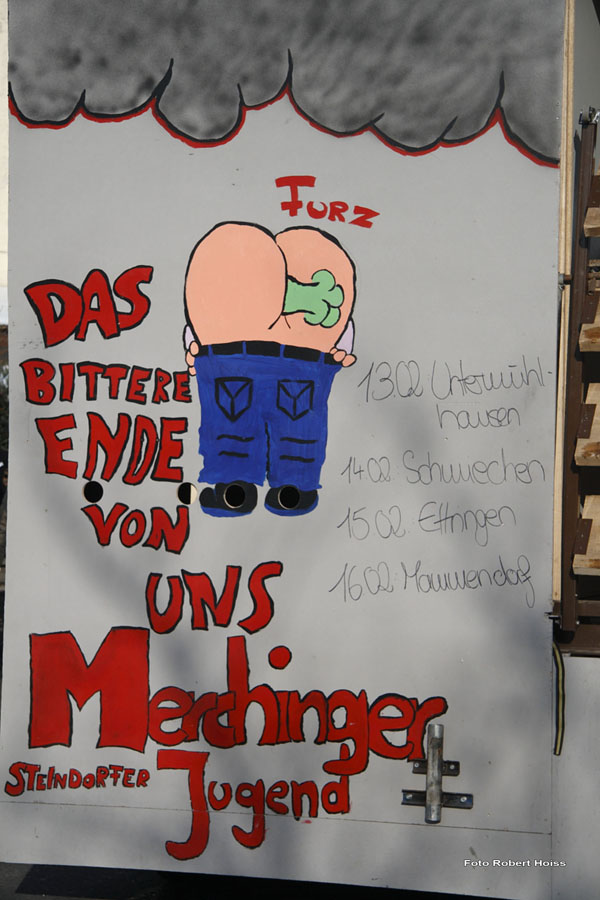 FURZ
DAS
BITTERE
ENDE
VON
UNS
Merchinger
STEINDORFER Jugend
13.02 Untermühl-
hausen
14.02. Schmiechen
15.02. Ettringen
16.02. Mammendorf
Foto Robert Hoiss